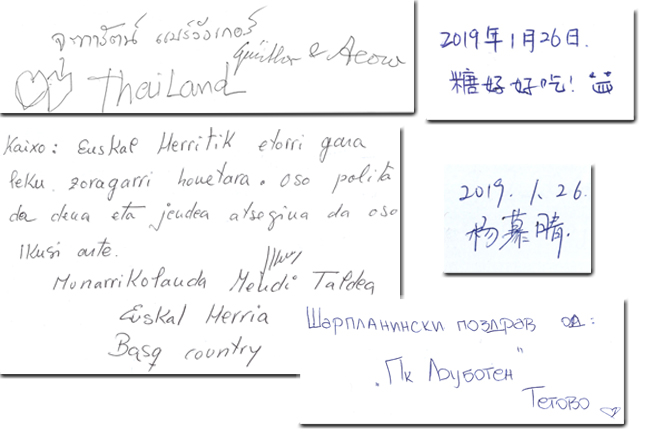 จุฑารัตน์ แบร์วังเกอร์
Günther & Aeow
Thailand
2019年1月26日.
糖好好吃!
Kaixo: Euskal Herritik etorri gara
leku zoragarri honetara. Oso polita
da dena eta jendea atsegina da oso
Ikusi arte.
Munarrikolanda Mendi Taldea
Euskal Herria
Basq country
2019.1.26.
杨慕晴.
Шарпланински поздрав од:
„Пк Љуботен"
Тетово